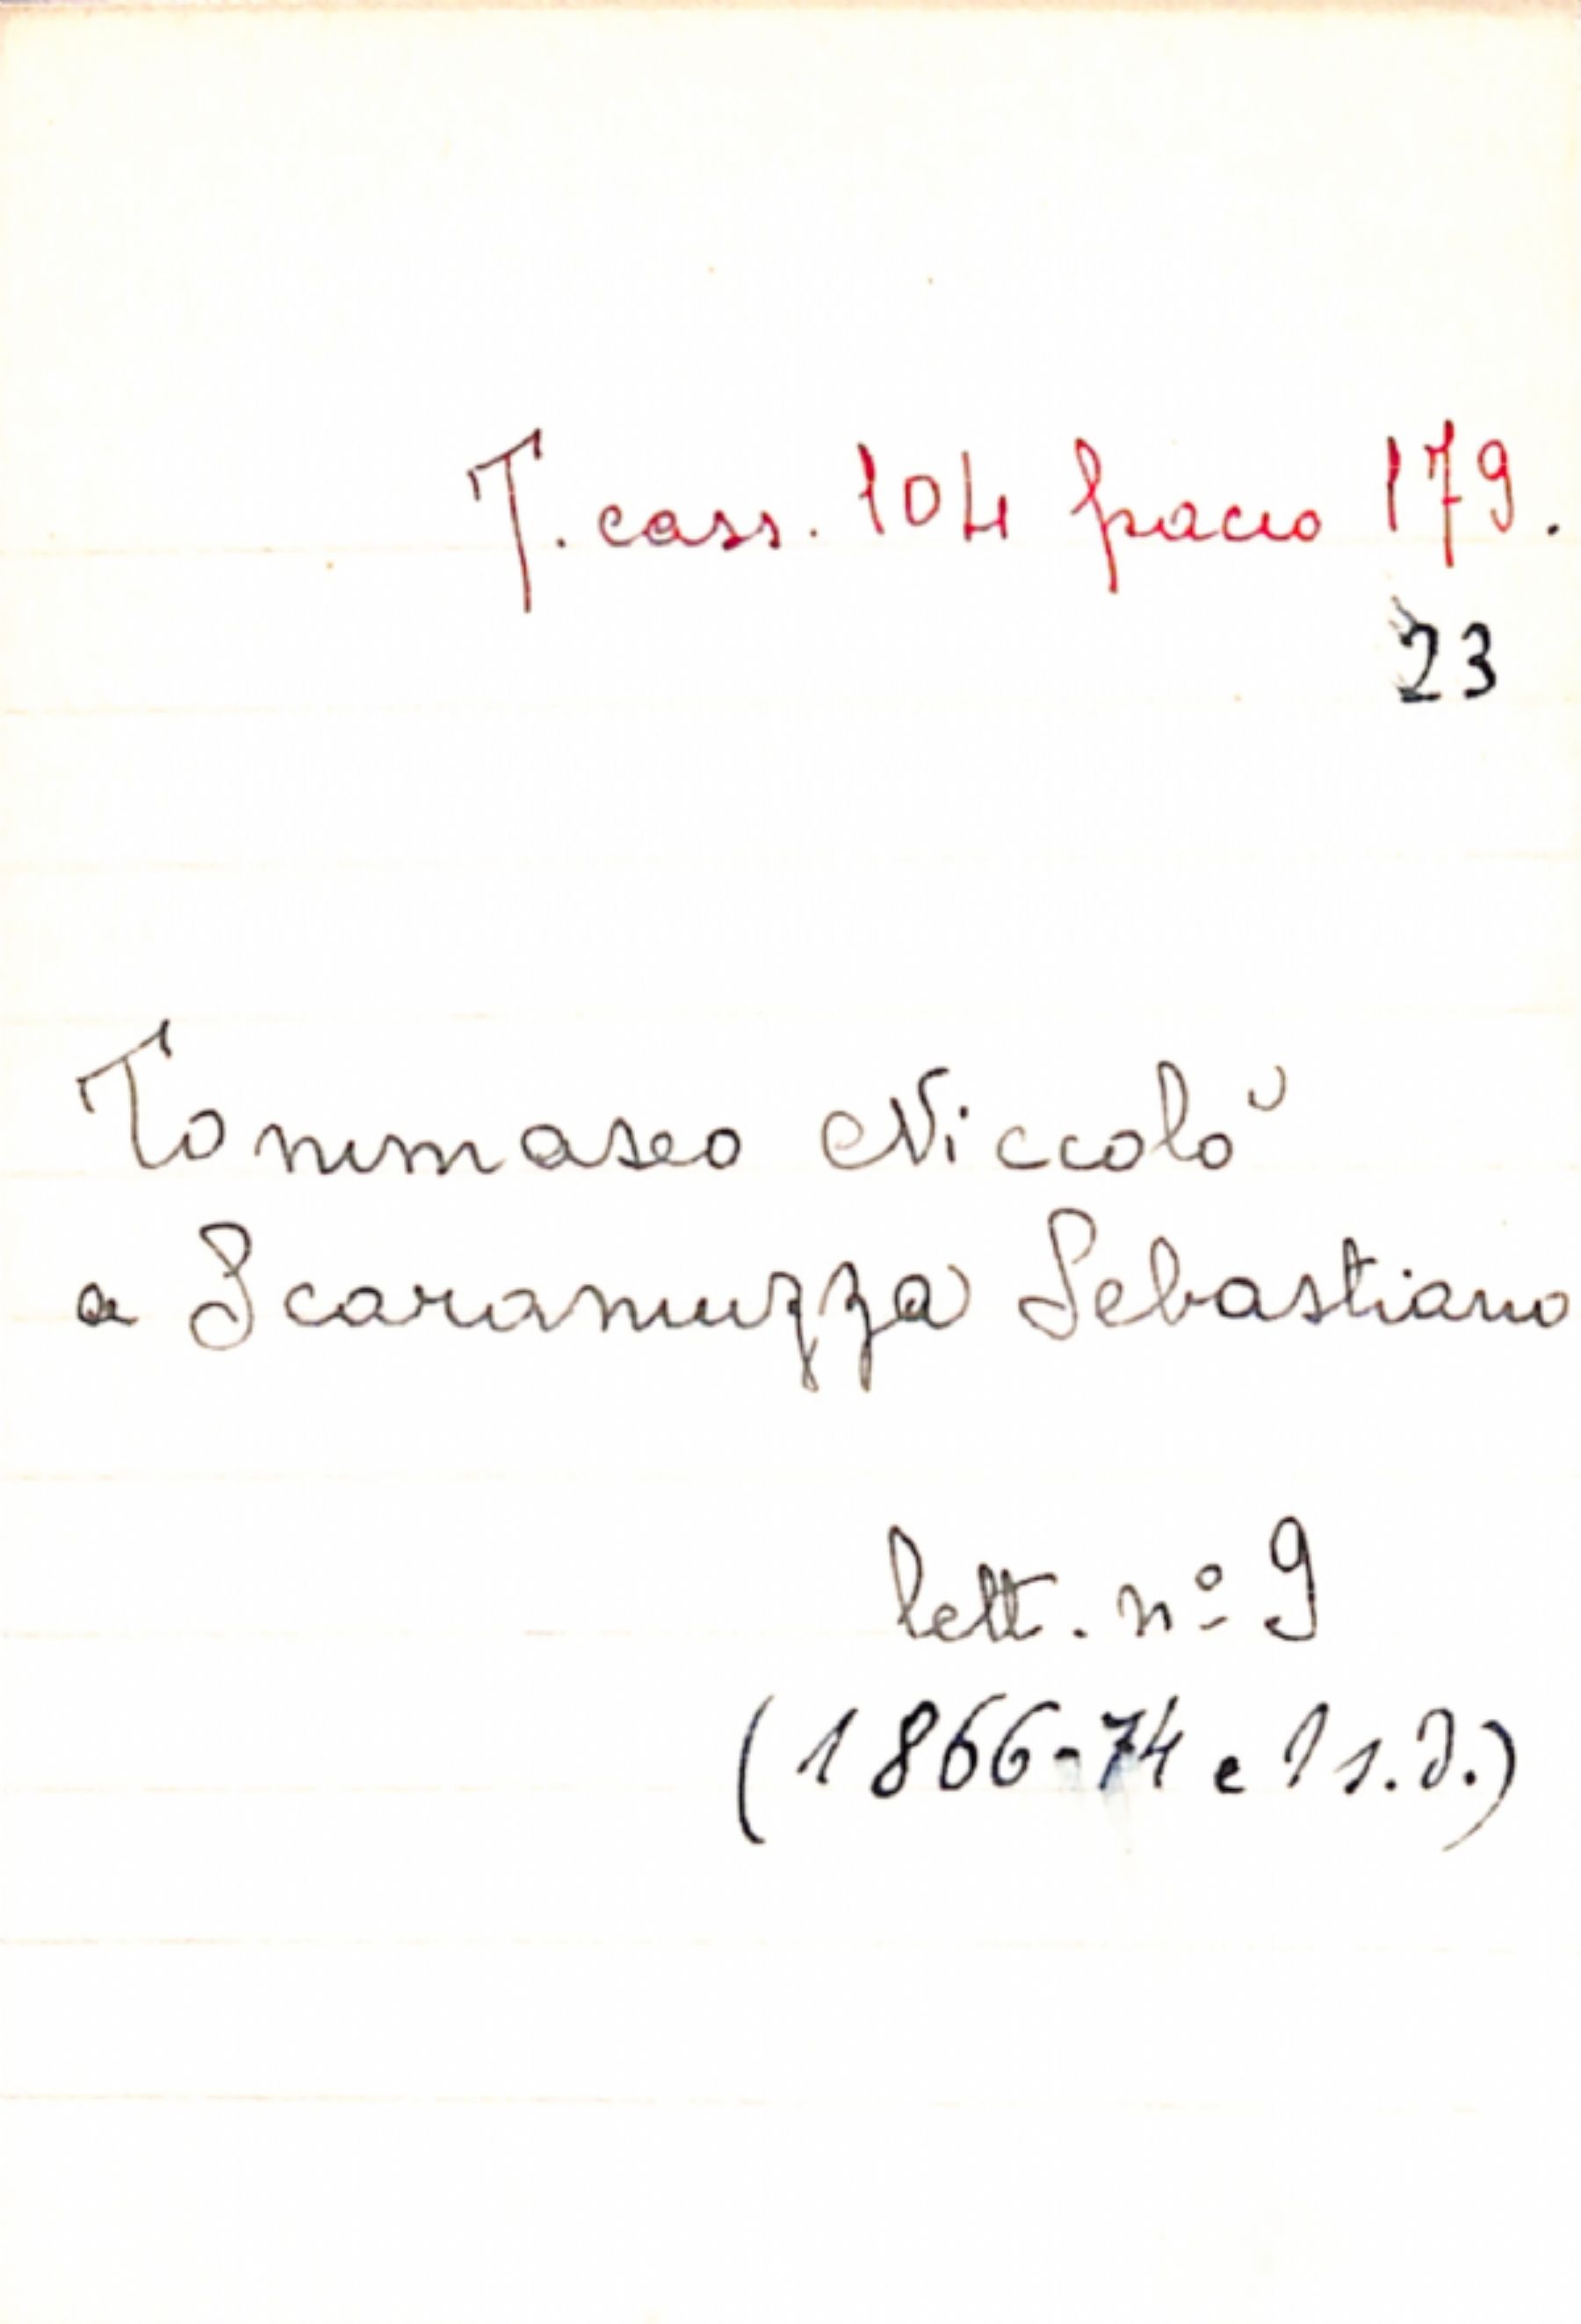 T. cass. 104 pacco 179.
23
Tommaseo Niccolò
a Scaramuzza Sebastiano
lett. nº 9
(1866-74 e 1 s.d.)